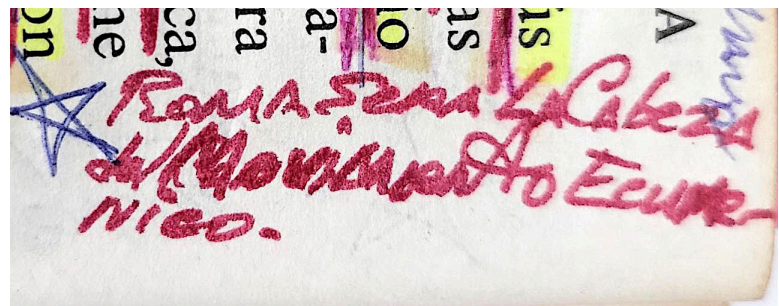 on
ne
ca,
ra
a-
io
as
ís
A
ROMA SERA LA CABEZA
del MOVIMIENTO ECUME-
NICO.